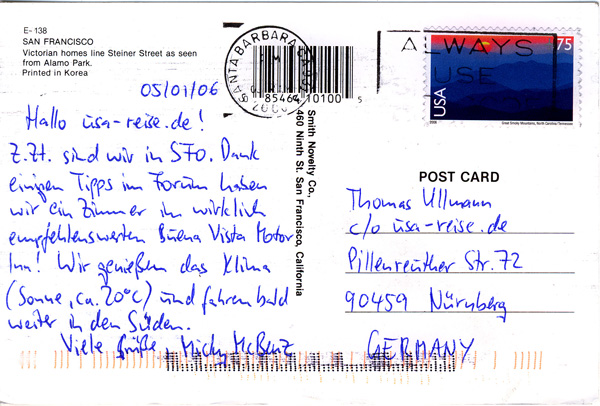 E-138
SAN FRANCISCO
Victorian homes line Steiner Street as seen
from Alamo Park.
Printed in Korea
05/01/06
Hallo usa-reise.de!
Z.Zt. sind wir in SFO. Dank
einigen Tipps im Forum haben
wir ein Zimmer im wirklich
empfehlenswerten Buena Vista Motor
Inn! Wir genießen das Klima
(Sonne, ca. 20°C) und fahren bald
weiter in den Süden.
Viele Grüße, Micky McBenz
SANTA BARBARA CA
85464 10100 5
Smith Novelty Co.,
460 Ninth St. San Francisco, California
ALWAYS
USE
75
USA
2006
Great Smoky Mountains, North Carolina-Tennessee
POST CARD
Thomas Ullmann
c/o usa-reise.de
Pillenreuther Str. 72
90459 Nürnberg
GERMANY